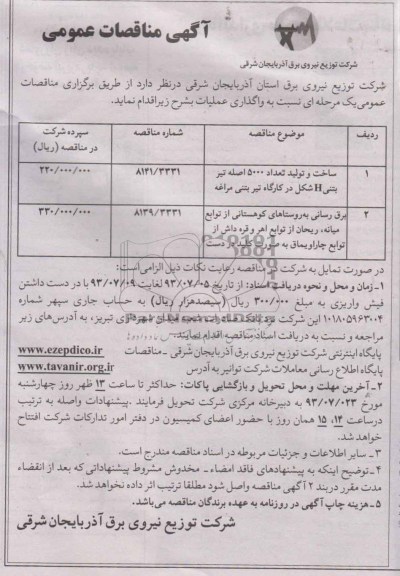 آگهی مناقصات عمومی
شرکت توزیع نیروی برق آذربایجان شرقی
شرکت توزیع نیروی برق استان آذربایجان شرقی درنظر دارد از طریق برگزاری مناقصات
عمومی یک مرحله ای نسبت به واگذاری عملیات بشرح زیراقدام نماید.
ردیف موضوع مناقصه شماره مناقصه سپرده شرکت در مناقصه (ریال)
۱ ساخت و تولید تعداد ۵۰۰۰ اصله تیر بتنی H شکل در کارگاه تیر بتنی مراغه ۸۱۴۱/۳۳۳۱ ۲۲۰/۰۰۰/۰۰۰
۲ برق رسانی به روستاهای کوهستانی از توابع میانه، ریحان از توابع اهر و قره داش از توابع چاراویماق به صورت کلید در دست ۸۱۳۹/۳۳۳۱ ۳۳۰/۰۰۰/۰۰۰
در صورت تمایل به شرکت در مناقصه رعایت نکات ذیل الزامی است:
۱- زمان و محل و نحوه دریافت اسناد: از تاریخ ۹۳/۰۷/۰۵ لغایت ۹۳/۰۷/۰۹ با در دست داشتن
فیش واریزی به مبلغ ۳۰۰/۰۰۰ ریال (سیصدهزار ریال) به حساب جاری سپهر شماره
۰۱۰۱۸۰۵۹۶۳۰۰۴ این شرکت نزد بانک صادرات شعبه میدان شهرداری تبریز، به آدرس‌های زیر
مراجعه و نسبت به دریافت اسناد مناقصه اقدام نمایند.
پایگاه اینترنتی شرکت توزیع نیروی برق آذربایجان شرقی - مناقصات www.ezepdico.ir
پایگاه اطلاع رسانی معاملات شرکت توانیر به آدرس www.tavanir.org.ir
۲- آخرین مهلت و محل تحویل و بازگشایی پاکات: حداکثر تا ساعت ۱۳ ظهر روز چهارشنبه
مورخ ۹۳/۰۷/۰۲۳ به دبیرخانه مرکزی شرکت تحویل فرمایند. پیشنهادات واصله به ترتیب
درساعت ۱۴، ۱۵ همان روز با حضور اعضای کمیسیون در دفتر امور تدارکات شرکت افتتاح
خواهد شد.
۳- سایر اطلاعات و جزئیات مربوطه در اسناد مناقصه مندرج است.
۴- توضیح اینکه به پیشنهادهای فاقد امضاء - مخدوش مشروط پیشنهاداتی که بعد از انقضاء
مدت مقرر دربند ۲ آگهی مناقصه واصل شود مطلقا ترتیب اثر داده نخواهد شد.
۵- هزینه چاپ آگهی در روزنامه به عهده برندگان مناقصه می‌باشد.
شرکت توزیع نیروی برق آذربایجان شرقی